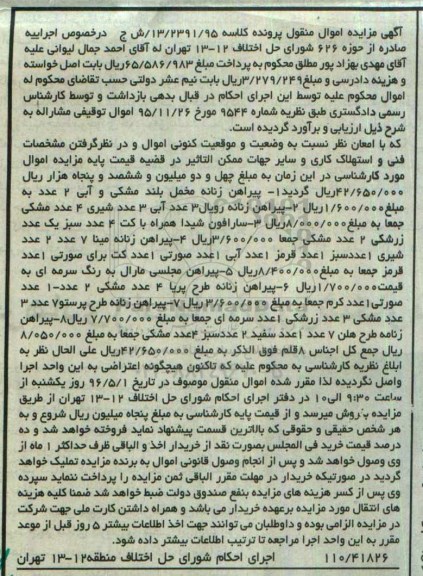 آگهی مزایده اموال منقول پرونده کلاسه ۱۳/۲۳۹۱/۹۵/ش ج درخصوص اجراییه
صادره از حوزه ۶۲۶ شورای حل اختلاف ۱۲-۱۳ تهران له آقای احمد جمال لیوانی علیه
آقای مهدی بهزاد پور مطلق محکوم به پرداخت مبلغ ۶۵/۵۸۶/۹۸۳ریال بابت اصل خواسته
و هزینه دادرسی و مبلغ۳/۲۷۹/۲۴۹ریال بابت نیم عشر دولتی حسب تقاضای محکوم له
اموال محکوم علیه توسط این اجرای احکام در قبال بدهی بازداشت و توسط کارشناس
رسمی دادگستری طبق نظریه شماره ۹۵۴۴ مورخ ۹۵/۱۱/۲۶ اموال توقیفی مشارالیه به
شرح ذیل ارزیابی و برآورد گردیده است.
که با امعان نظر نسبت به وضعیت و موقعیت کنونی اموال و در نظرگرفتن مشخصات
فنی و استهلاک کاری و سایر جهات ممکن التاثیر در قضیه قیمت پایه مزایده اموال
مورد کارشناسی در این زمان به مبلغ چهل و دو میلیون و ششصد و پنجاه هزار ریال
۴۲/۶۵۰/۰۰۰ریال گردید۱- پیراهن زنانه مخمل بلند مشکی و آبی ۲ عدد به
مبلغ۱/۶۰۰/۰۰۰ریال ۲-پیراهن زنانه رویال۳ عدد آبی ۳ عدد شیری ۴ عدد مشکی
جمعا به مبلغ۸/۰۰۰/۰۰۰ریال ۳-سارافون شیدا همراه با کت ۴ عدد سبز یک عدد
زرشکی ۲ عدد مشکی جمعا ۳/۶۰۰/۰۰۰ریال ۴-پیراهن زنانه مینا ۷ عدد ۲ عدد
شیری ۱عددسبز ۱عدد قرمز ۱عدد آبی ۱عدد صورتی ۱عدد کت برای صورتی ۱عدد
قرمز جمعا به مبلغ۸/۴۰۰/۰۰۰ریال ۵-پیراهن مجلسی مارال به رنگ سرمه ای به
قیمت۱/۷۰۰/۰۰۰ریال ۶-پیراهن زنانه طرح پریا ۴ عدد مشکی ۲ عدد-۱ عدد
صورتی۱عدد کرم جمعا به مبلغ ۳/۶۰۰/۰۰۰ ریال ۷-پیراهن زنانه طرح پرستو۷ عدد ۳
عدد مشکی ۳ عدد زرشکی ۱عدد سرمه ای جمعا به مبلغ ۷/۷۰۰/۰۰۰ ریال۸-پیراهن
زنامه طرح هلن ۷ عدد ۱عدد سفید ۲ عددسبز ۴عدد مشکی جمعا به مبلغ ۸/۰۵۰/۰۰۰
ریال جمع کل اجناس ۸قلم فوق الذکر به مبلغ ۴۲/۶۵۰/۰۰۰ریال علی الحال نظر به
ابلاغ نظریه کارشناسی به محکوم علیه که تاکنون هیچگونه اعتراضی به این واحد اجرا
واصل نگردیده لذا مقرر شده اموال منقول موصوف در تاریخ ۹۶/۵/۱ روز یکشنبه از
ساعت ۹:۳۰ الی۱۰ در دفتر اجرای احکام شورای حل اختلاف ۱۲-۱۳ تهران از طریق
مزایده بفروش میرسد و از قیمت پایه کارشناسی به مبلغ پنجاه میلیون ریال شروع و به
هر شخص حقیقی و حقوقی که بالاترین قسمت پیشنهاد نماید فروخته خواهد شد و ده
درصد قیمت خرید فی المجلس بصورت نقد از خریدار اخذ و الباقی ظرف حداکثر ۱ ماه از
وی وصول خواهد شد و پس از انجام وصول قانونی اموال به برنده مزایده تملیک خواهد
گردید در صورتیکه خریدار در مهلت مقرر الباقی ثمن مزایده را پرداخت ننماید سپرده
وی پس از کسر هزینه های مزایده بنفع صندوق دولت ضبط خواهد شد ضمنا کلیه هزینه
های انتقال مورد مزایده برعهده خریدار می باشد و همراه داشتن کارت ملی جهت شرکت
در مزایده الزامی بوده و داوطلبان می توانند جهت اخذ اطلاعات بیشتر ۵ روز قبل از موعد
مقرر به این واحد اجرا مراجعه تا ترتیب اطلاعات بیشتر داده شود.
۱۱۰/۴۱۸۲۶ اجرای احکام شورای حل اختلاف منطقه۱۲-۱۳ تهران